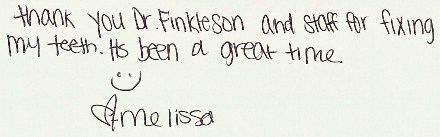 thank you Dr. Finkleson and staff for fixing
my teeth. Its been a great time.
Amelissa